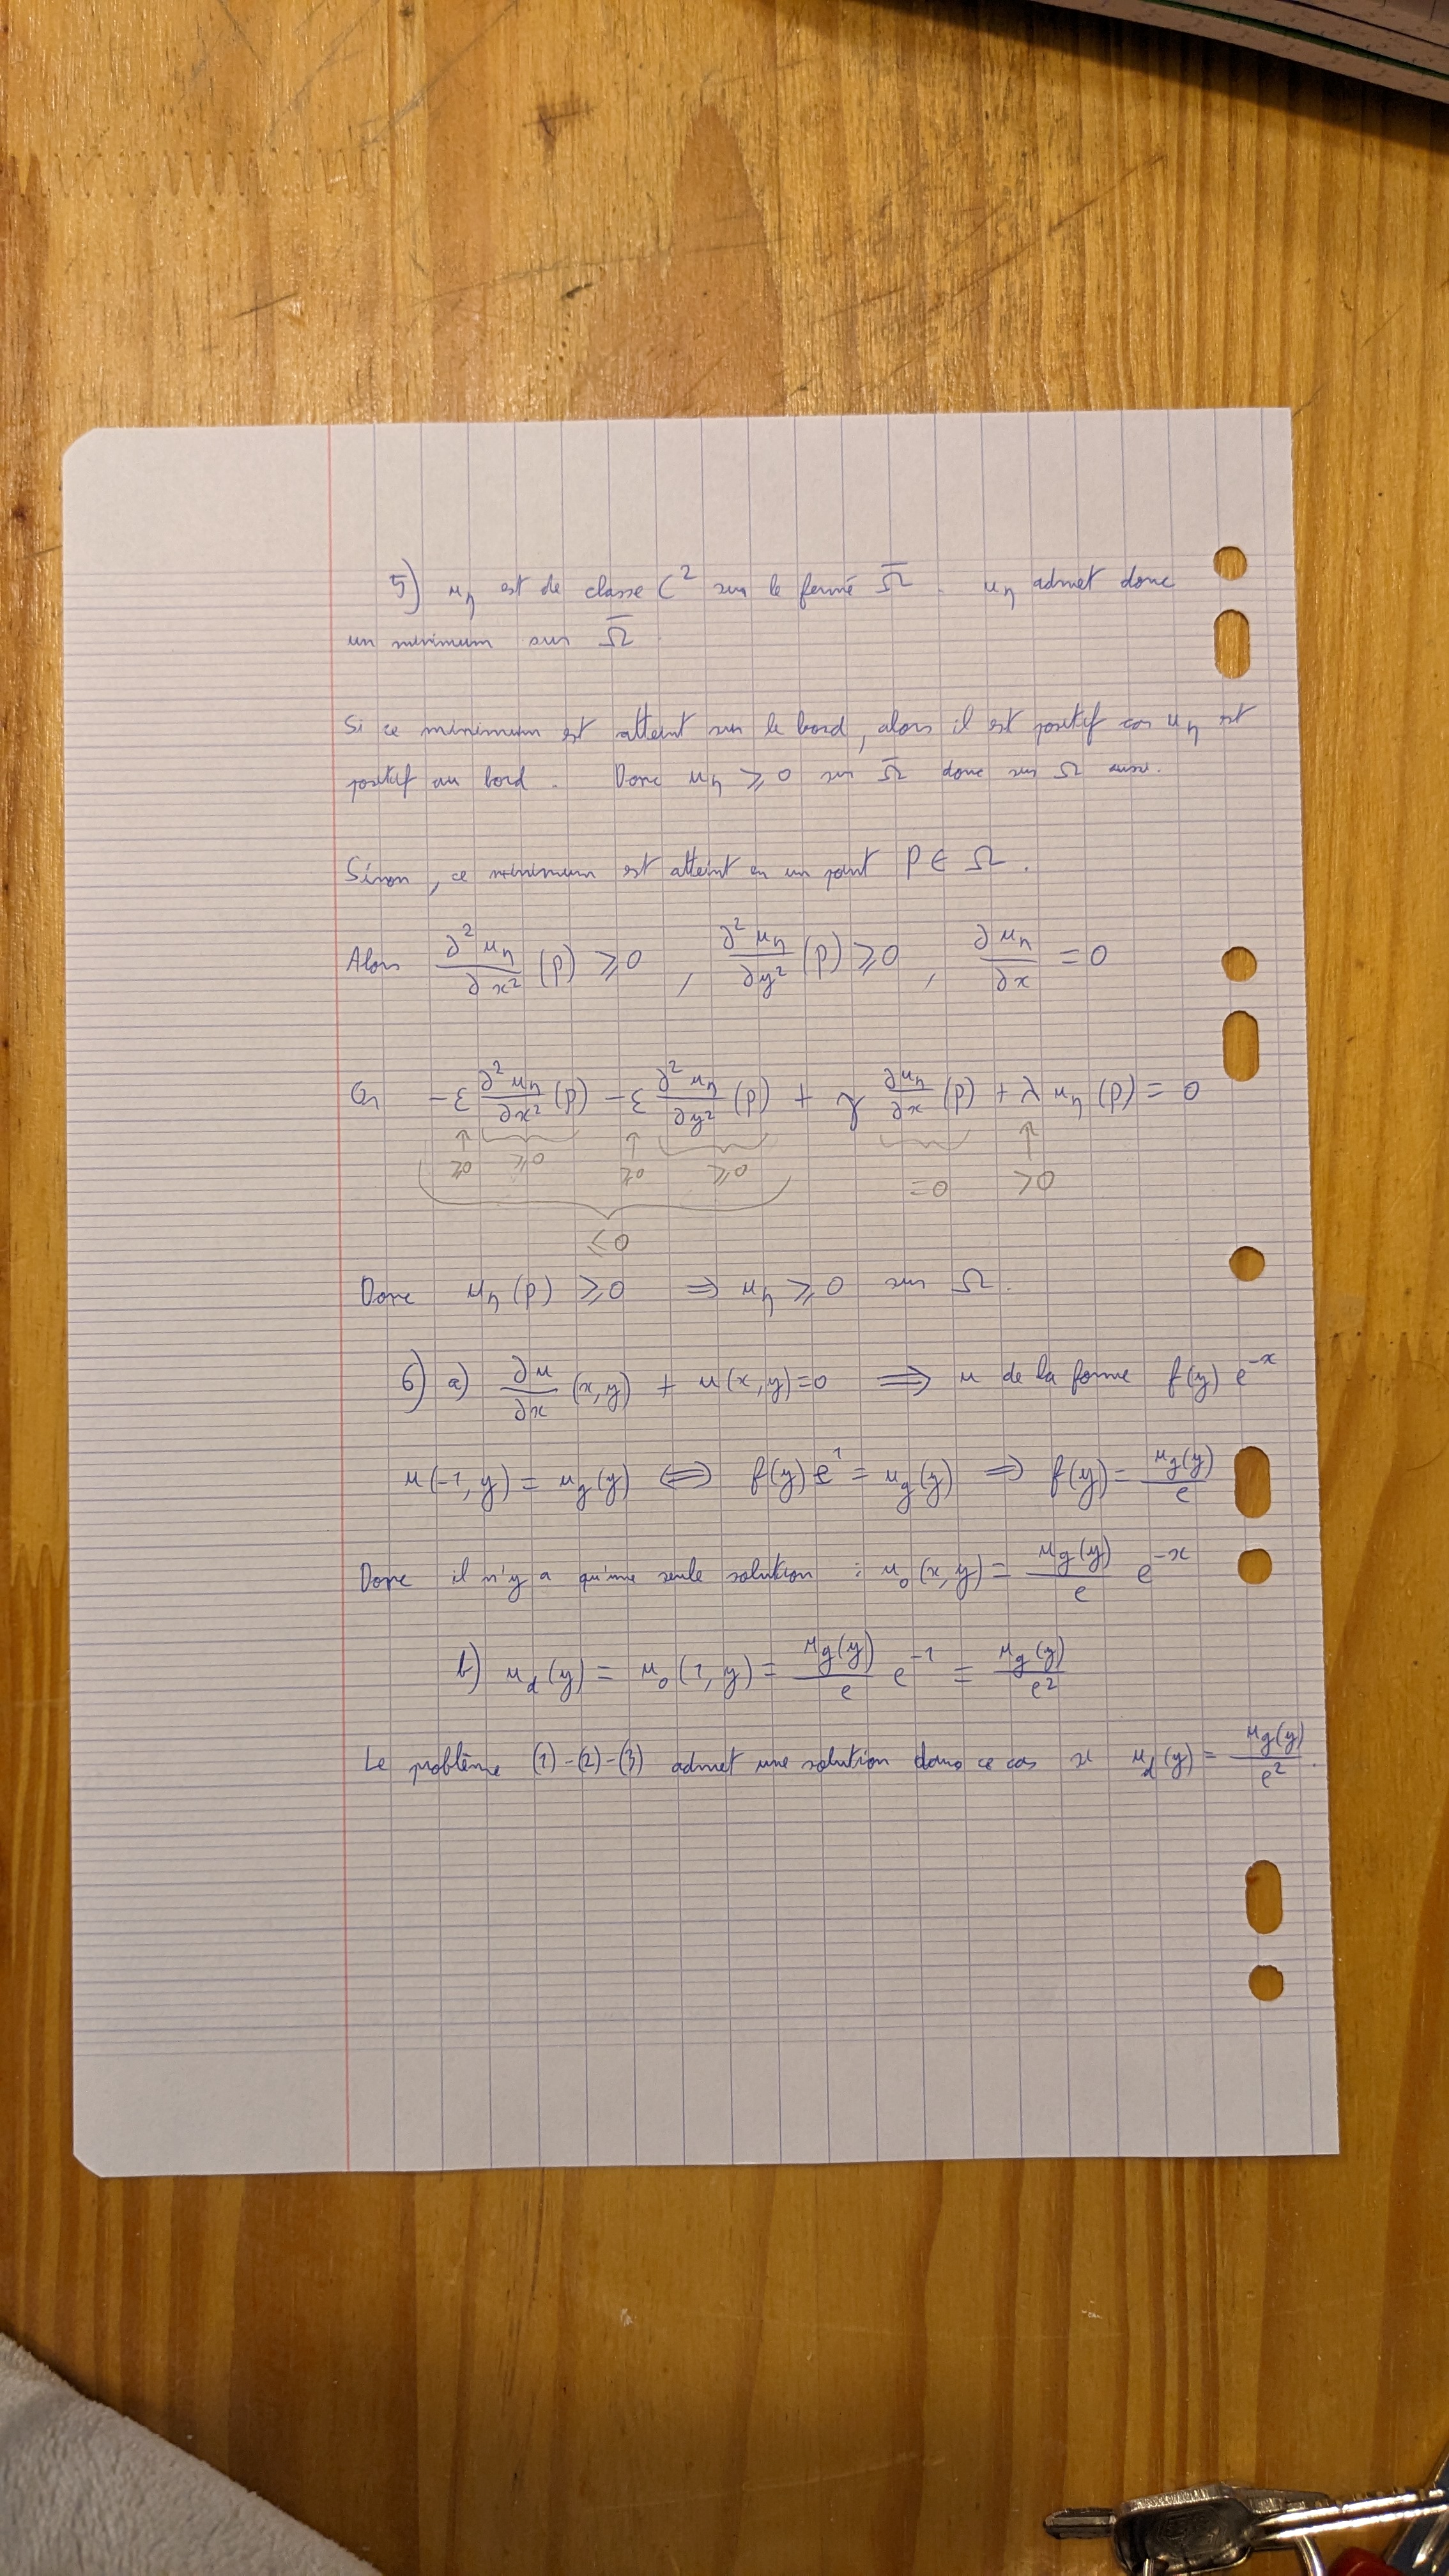 5) u_η est de classe C² sur le fermé Ω̅. u_η admet donc
un minimum sur Ω̅.
Si ce minimum est atteint sur le bord, alors il est positif car u_η est
positif au bord. Donc u_η ⩾ 0 sur Ω̅ donc sur Ω aussi.
Sinon, ce minimum est atteint en un point P ∈ Ω.
Alors ∂²u_η/∂x² (P) ⩾ 0 , ∂²u_η/∂y² (P) ⩾ 0 , ∂u_η/∂x = 0
Or -ε ∂²u_η/∂x² (P) - ε ∂²u_η/∂y² (P) + γ ∂u_η/∂x (P) + λ u_η (P) = 0
= 0
Donc u_η (P) ⩾ 0 ⇒ u_η ⩾ 0 sur Ω.
6) a) ∂u/∂x (x,y) + u(x,y)=0 ⟹ u de la forme f(y) e^{-x}
u(-1,y) = u_g(y) ⟺ f(y) e^1 = u_g(y) ⟹ f(y) = u_g(y)/e
Donc il n'y a qu'une seule solution : u_0(x,y) = u_g(y)/e e^{-x}
b) u_d(y) = u_0(1,y) = u_g(y)/e e^{-1} = u_g(y)/e²
Le problème (1)-(2)-(3) admet une solution dans ce cas si u_d(y) = u_g(y)/e².